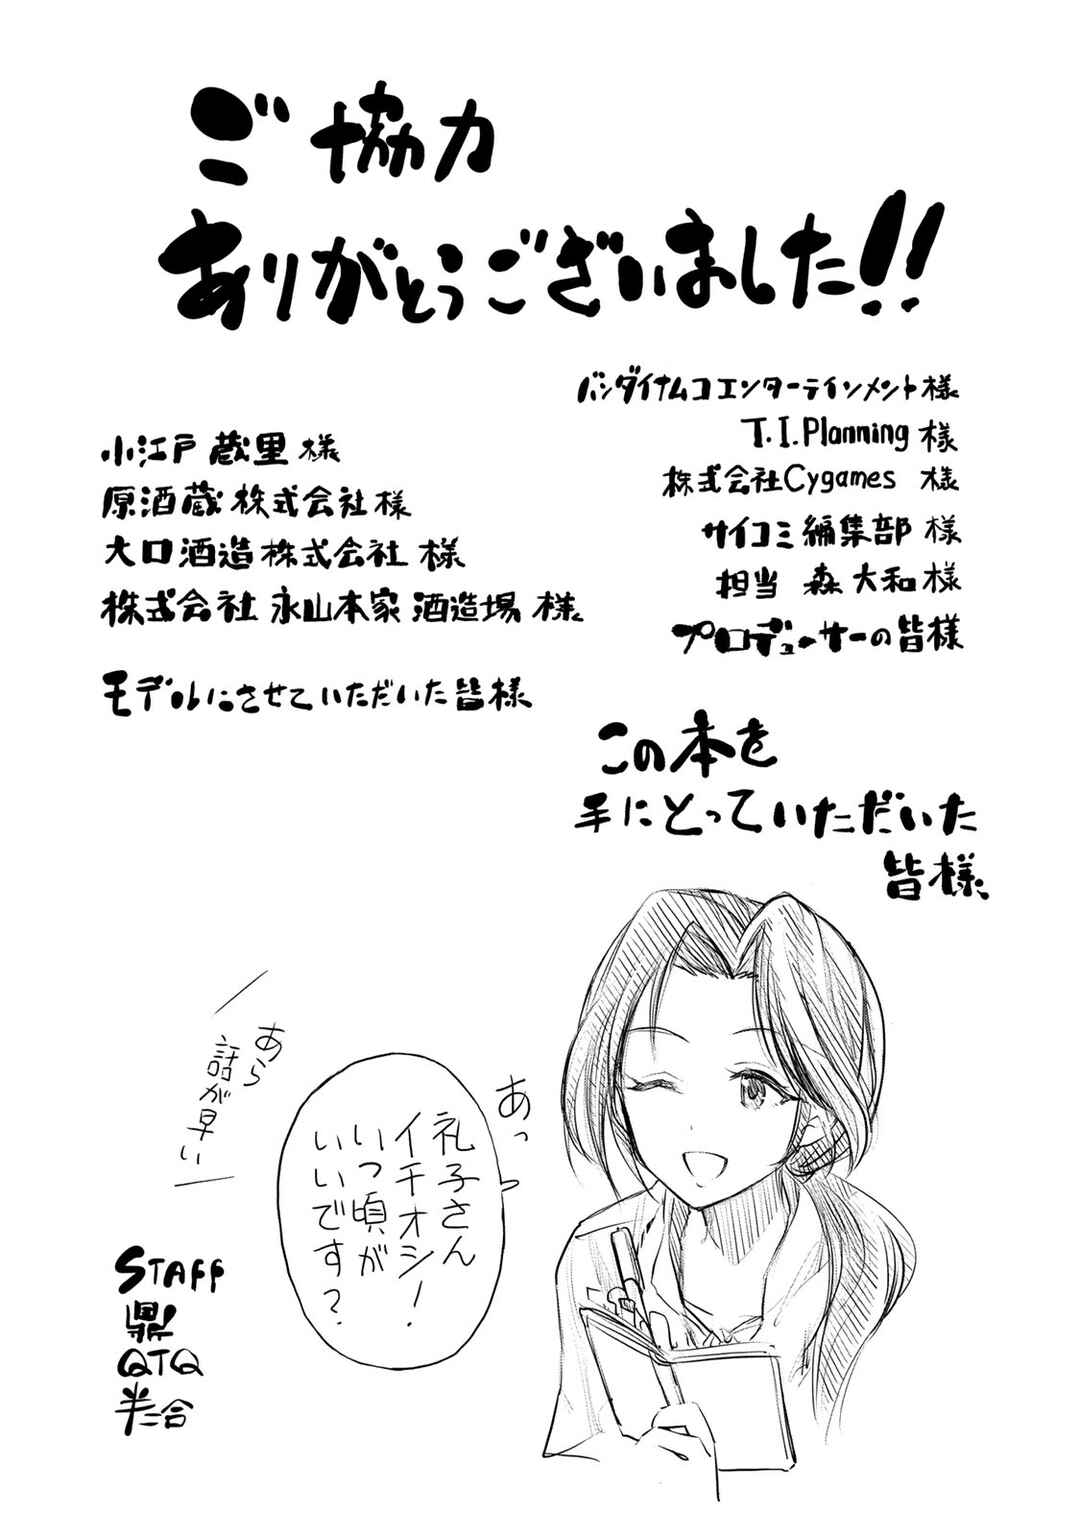 ご協力
ありがとうございました!!
バンダイナムコエンターテインメント様
T.I.Planning様
株式会社Cygames 様
サイコミ編集部様
担当 森大和様
プロデューサーの皆様
小江戸蔵里様
原酒蔵株式会社様
大口酒造株式会社様
株式会社永山本家酒造場様
モデルにさせていただいた皆様
この本を
手にとっていただいた
皆様
あっ
礼子さん
イチオシ!
いつ頃が
いいです?
あら
話が早い
STAFF
鼎
QTQ
半二合